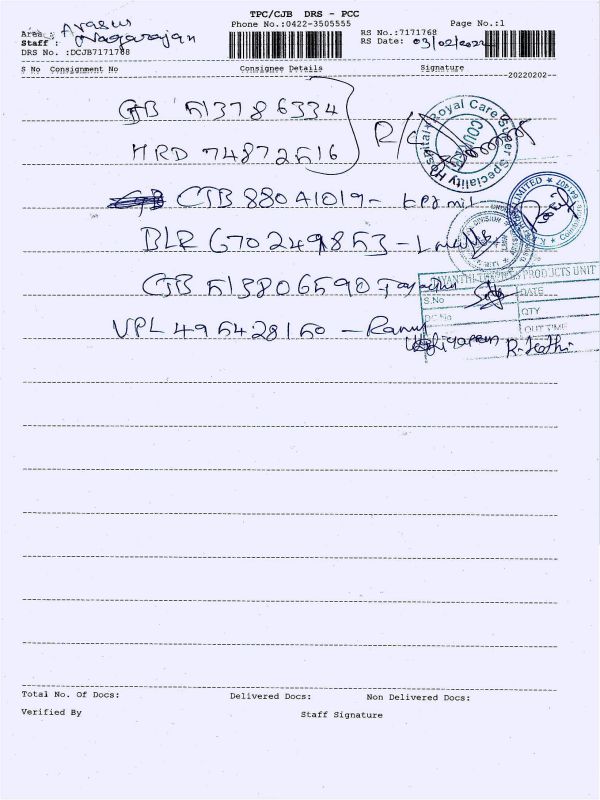 TPC/CJB DRS - PCC
Phone No.:0422-3505555
Page No.:1
Area :
Staff : Nagarajan
DRS No. :DCJB7171768
RS No.:7171768
RS Date: 03/02/2022
S No Consignment No Consignee Details Signature
20220202
CJB 513786334
HRD 74872516
R/C
Royal Care Super Speciality Hospital
CJB 880A1019 -
BLR 670249853 -
CJB 513806590
VPL 495428150 -
PRODUCTS UNIT
S.No DATE
QTY
OUT TIME
Total No. Of Docs: Delivered Docs: Non Delivered Docs:
Verified By Staff Signature